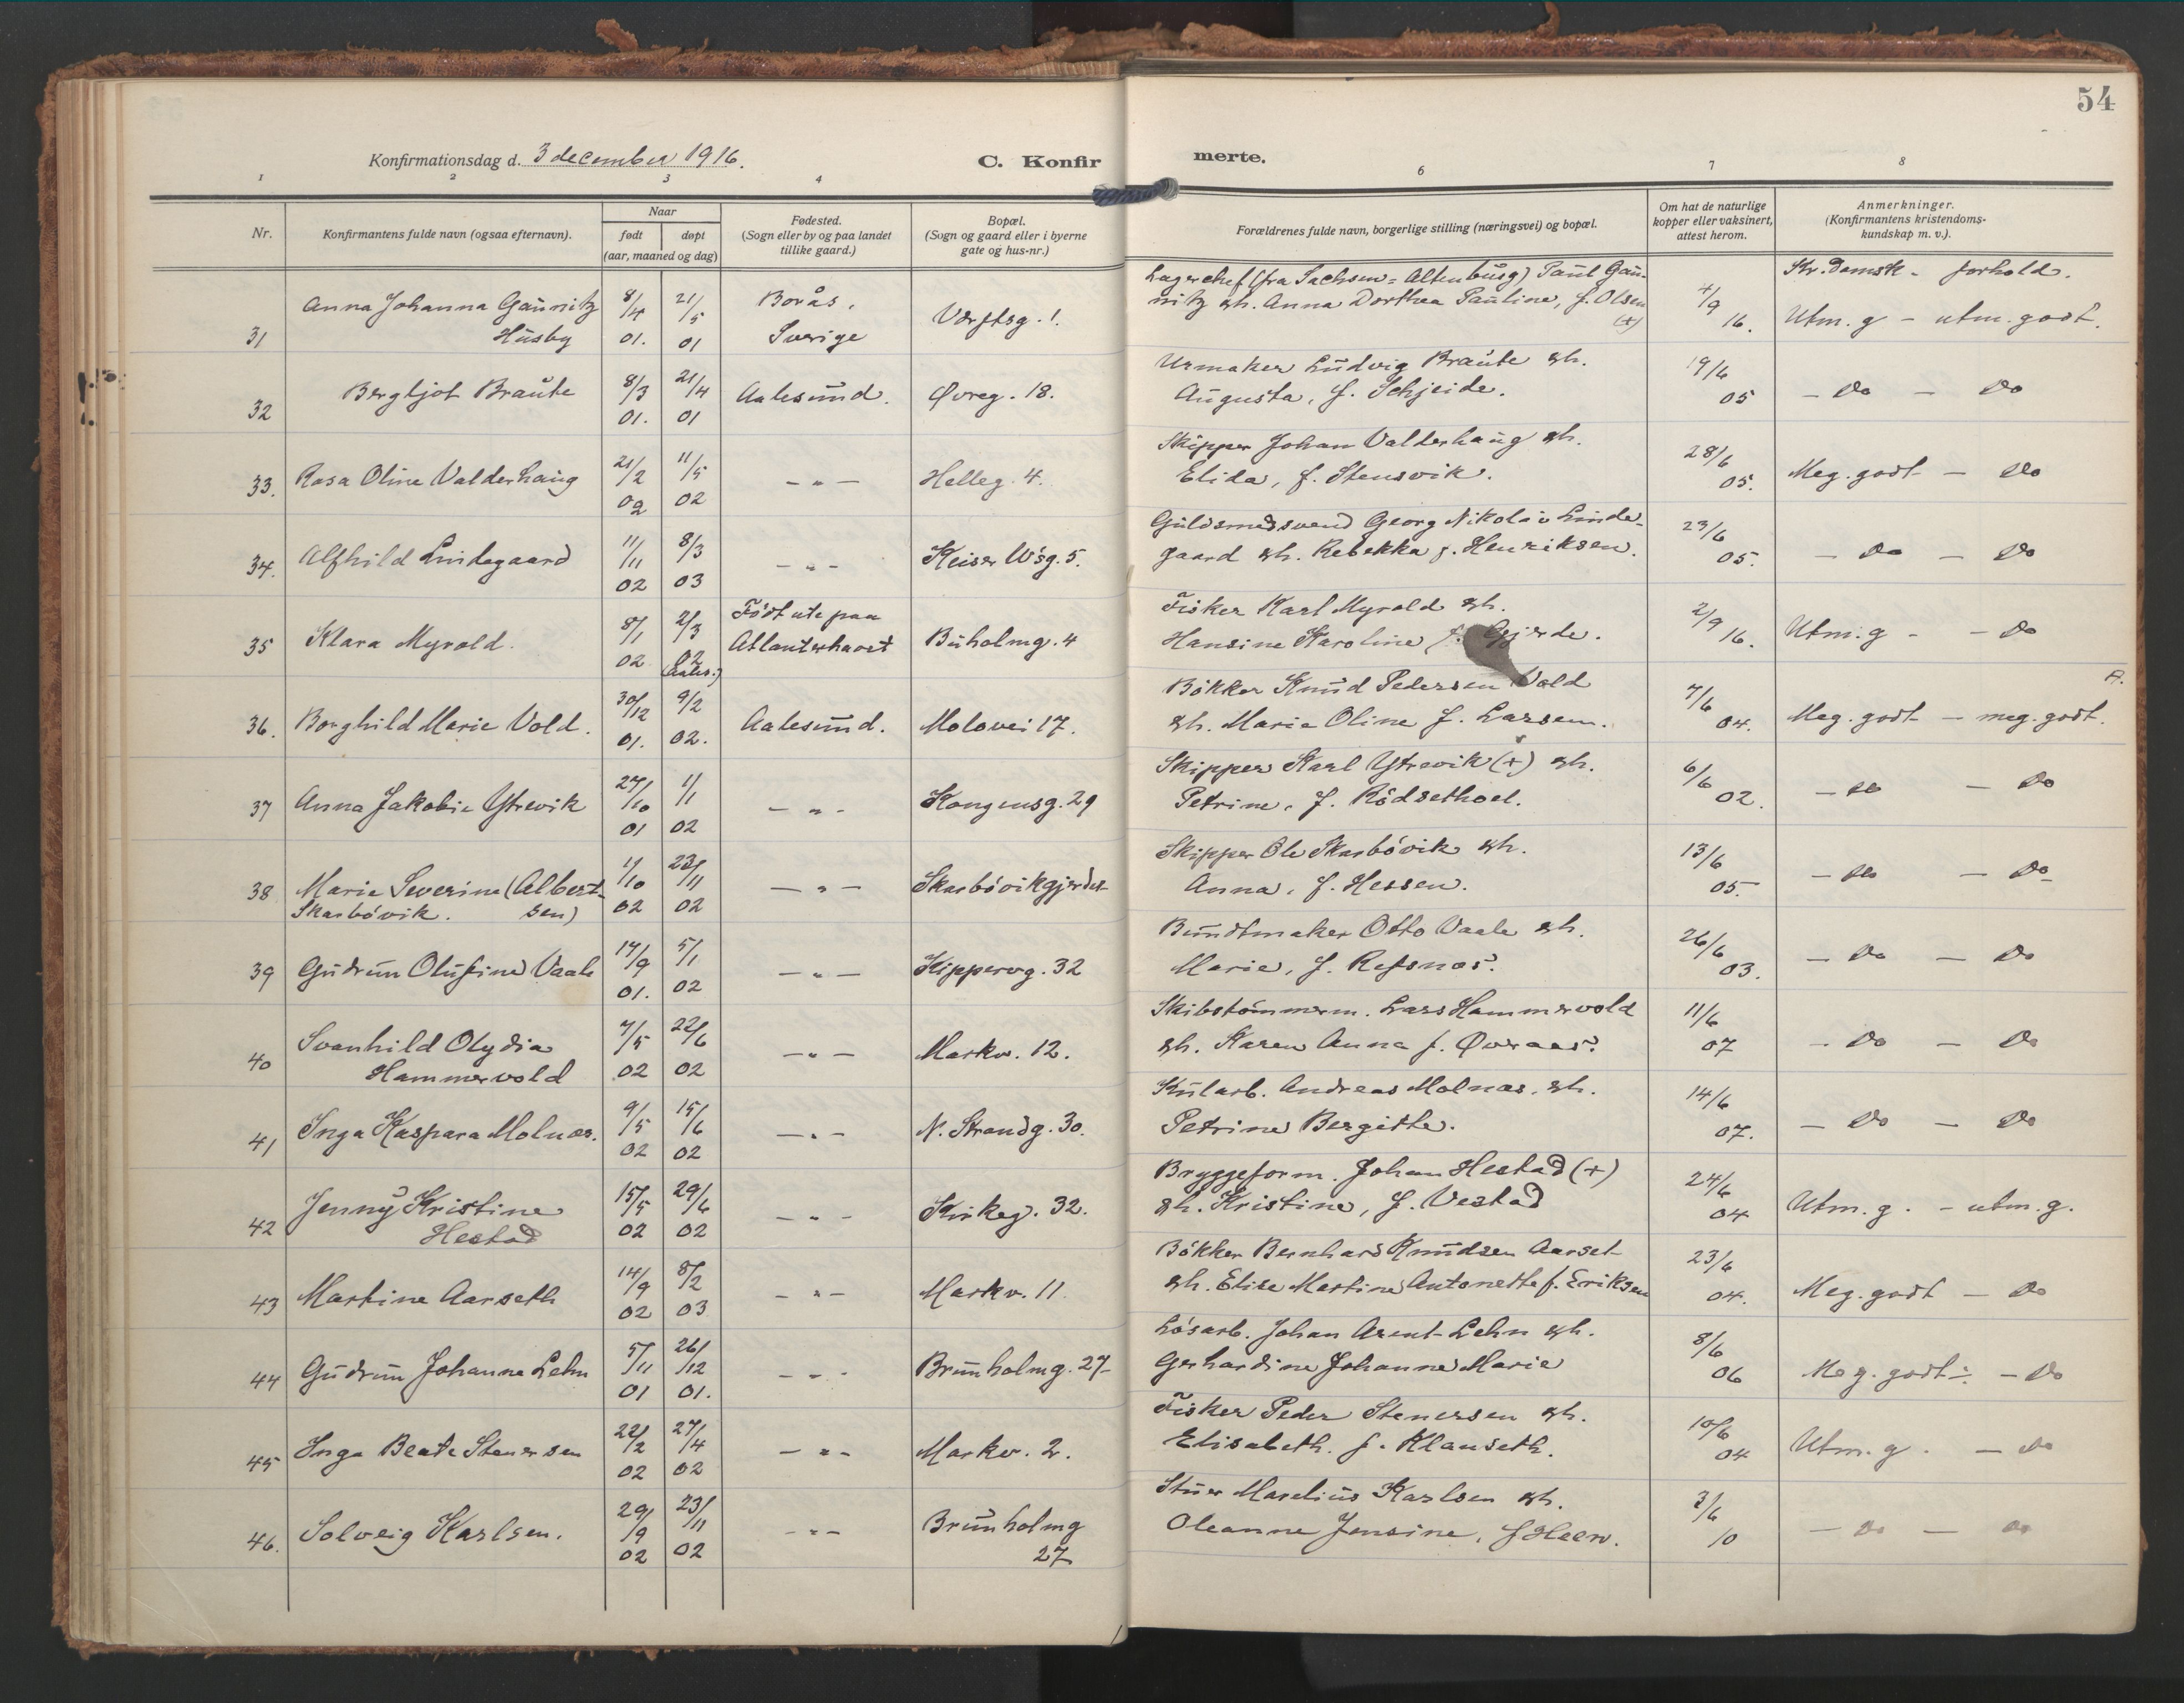 54
Konfirmationsdag d. 3 december 1916.
C. Konfir
merte.
1 2 3 4 6 7 8
Nr.
Konfirmantens fulde navn (ogsaa efternavn).
Naar
født
døpt
(aar, maaned og dag)
Fødested.
(Sogn eller by og paa landet
tillike gaard.)
Bopæl.
(Sogn og gaard eller i byerne
gate og hus-nr.)
Forældrenes fulde navn, borgerlige stilling (næringsvei) og bopæl.
Om hat de naturlige
kopper eller vaksinert,
attest herom.
Anmerkninger.
(Konfirmantens kristendoms-
kundskap m. v.).
Kr. Domsk - forhold.
31 Anna Johanna Gaunitz Husby 8/4 01. 21/5 01 Borås, Sverige Værftsg. 1. Lagerchef (fra Sachsen=Altenburg) Paul Gaunitz &h. Anna Dorthea Pauline, f. Olsen (+) 4/9 16. Utm. g - utm. godt.
32 Bergljot Braute 8/3 01. 21/4 01 Aalesund. Øvreg. 18. Urmaker Ludvig Braute &h. Augusta, f. Schjeide. 19/6 05 - Do - Do
33. Rasa Oline Valderhaug 21/2 02 11/5 02 - " - Helleg. 4. Skipper Johan Valderhaug &h. Elida, f. Stensvik. 28/6 05. Meg. godt - Do
34. Alfhild Lindegaard 11/11 02 8/3 03 - " - Keiser W's g. 5. Guldsmedsvend Georg Nikolai Lindegaard &h. Rebekka f. Henriksen. 23/6 05. - Do - Do
35 Klara Myrold. 8/1 02 2/3 02 (Aales.) Født ute paa Atlanterhavet Buholmg. 4 Fisker Karl Myrold &h. Hansine Karoline f. Gjerde. 2/9 16. Utm. g - - Do
36. Borghild Marie Vold. 30/12 01. 9/2 02. Aalesund. Molovei 17. Bøkker Knud Pedersen Vold &h. Marie Oline f. Larsen. 7/6 04. Meg. godt - meg. godt.
37 Anna Jakobie Ytrevik 27/10 01 1/1 02 - " - Kongensg. 29 Skipper Karl Ytrevik (+) &h. Petrine, f. Rødsethoel. 6/6 02. - Do - Do
38 Marie Severine (Albertsen) Skarbøvik. 1/10 02 23/11 02 - " - Skarbøvikgjerdet Skipper Ole Skarbøvik &h. Anna, f. Hessen. 13/6 05. - Do - Do
39 Gudrun Olufine Vaale 17/9 01. 5/1 02 - " - Kipperøg. 32 Bundtmaker Otto Vaale &h. Marie, f. Refsnæs. 26/6 03. - Do - Do
40 Svanhild Olydia Hammervold 7/5 02 22/6 02 - " - Markv. 12. Skibstømmerm. Lars Hammervold &h. Karen Anna f. Øvraas. 11/6 07 - Do - Do
41 Inga Kaspara Molnæs. 9/5 02 15/6 02 - " - N. Strandg. 30. Kularb. Andreas Molnæs. &h. Petrine Bergitte. 14/6 07. - Do - Do
42 Jenny Kristine Hestad 15/5 02 29/6 02 - " - Kirkeg. 32. Bryggeform. Johan Hestad (+) &h. Kristine, f. Vestad 24/6 04 Utm. g. - utm. g.
43 Martine Aarseth 14/9 02 8/2 03 - " - Markv. 11. Bøkker Bernhard Knudsen Aarset &h. Elise Martine Antonette f. Eriksen 23/6 04. Meg. godt - Do
44 Gudrun Johanna Lehn 5/11 01 26/12 01. - " - Brunholmg. 27 Løsarb. Johan Arent Lehn &h. Gerhardine Johanne Marie 8/6 06 Meg. godt ÷ - Do
45 Inga Beate Stenersen 22/2 02 27/4 02 - " - Markv. 2. Fisker Peder Stenersen &h. Elisabeth f. Klauseth. 10/6 04 Utm. g. - Do
46. Solveig Karlsen. 29/9 02 23/11 02 - " - Brunholmg 27 Stuer Marelius Karlsen &h. Oleanne Jensine, f Heen. 3/6 10 - Do - Do